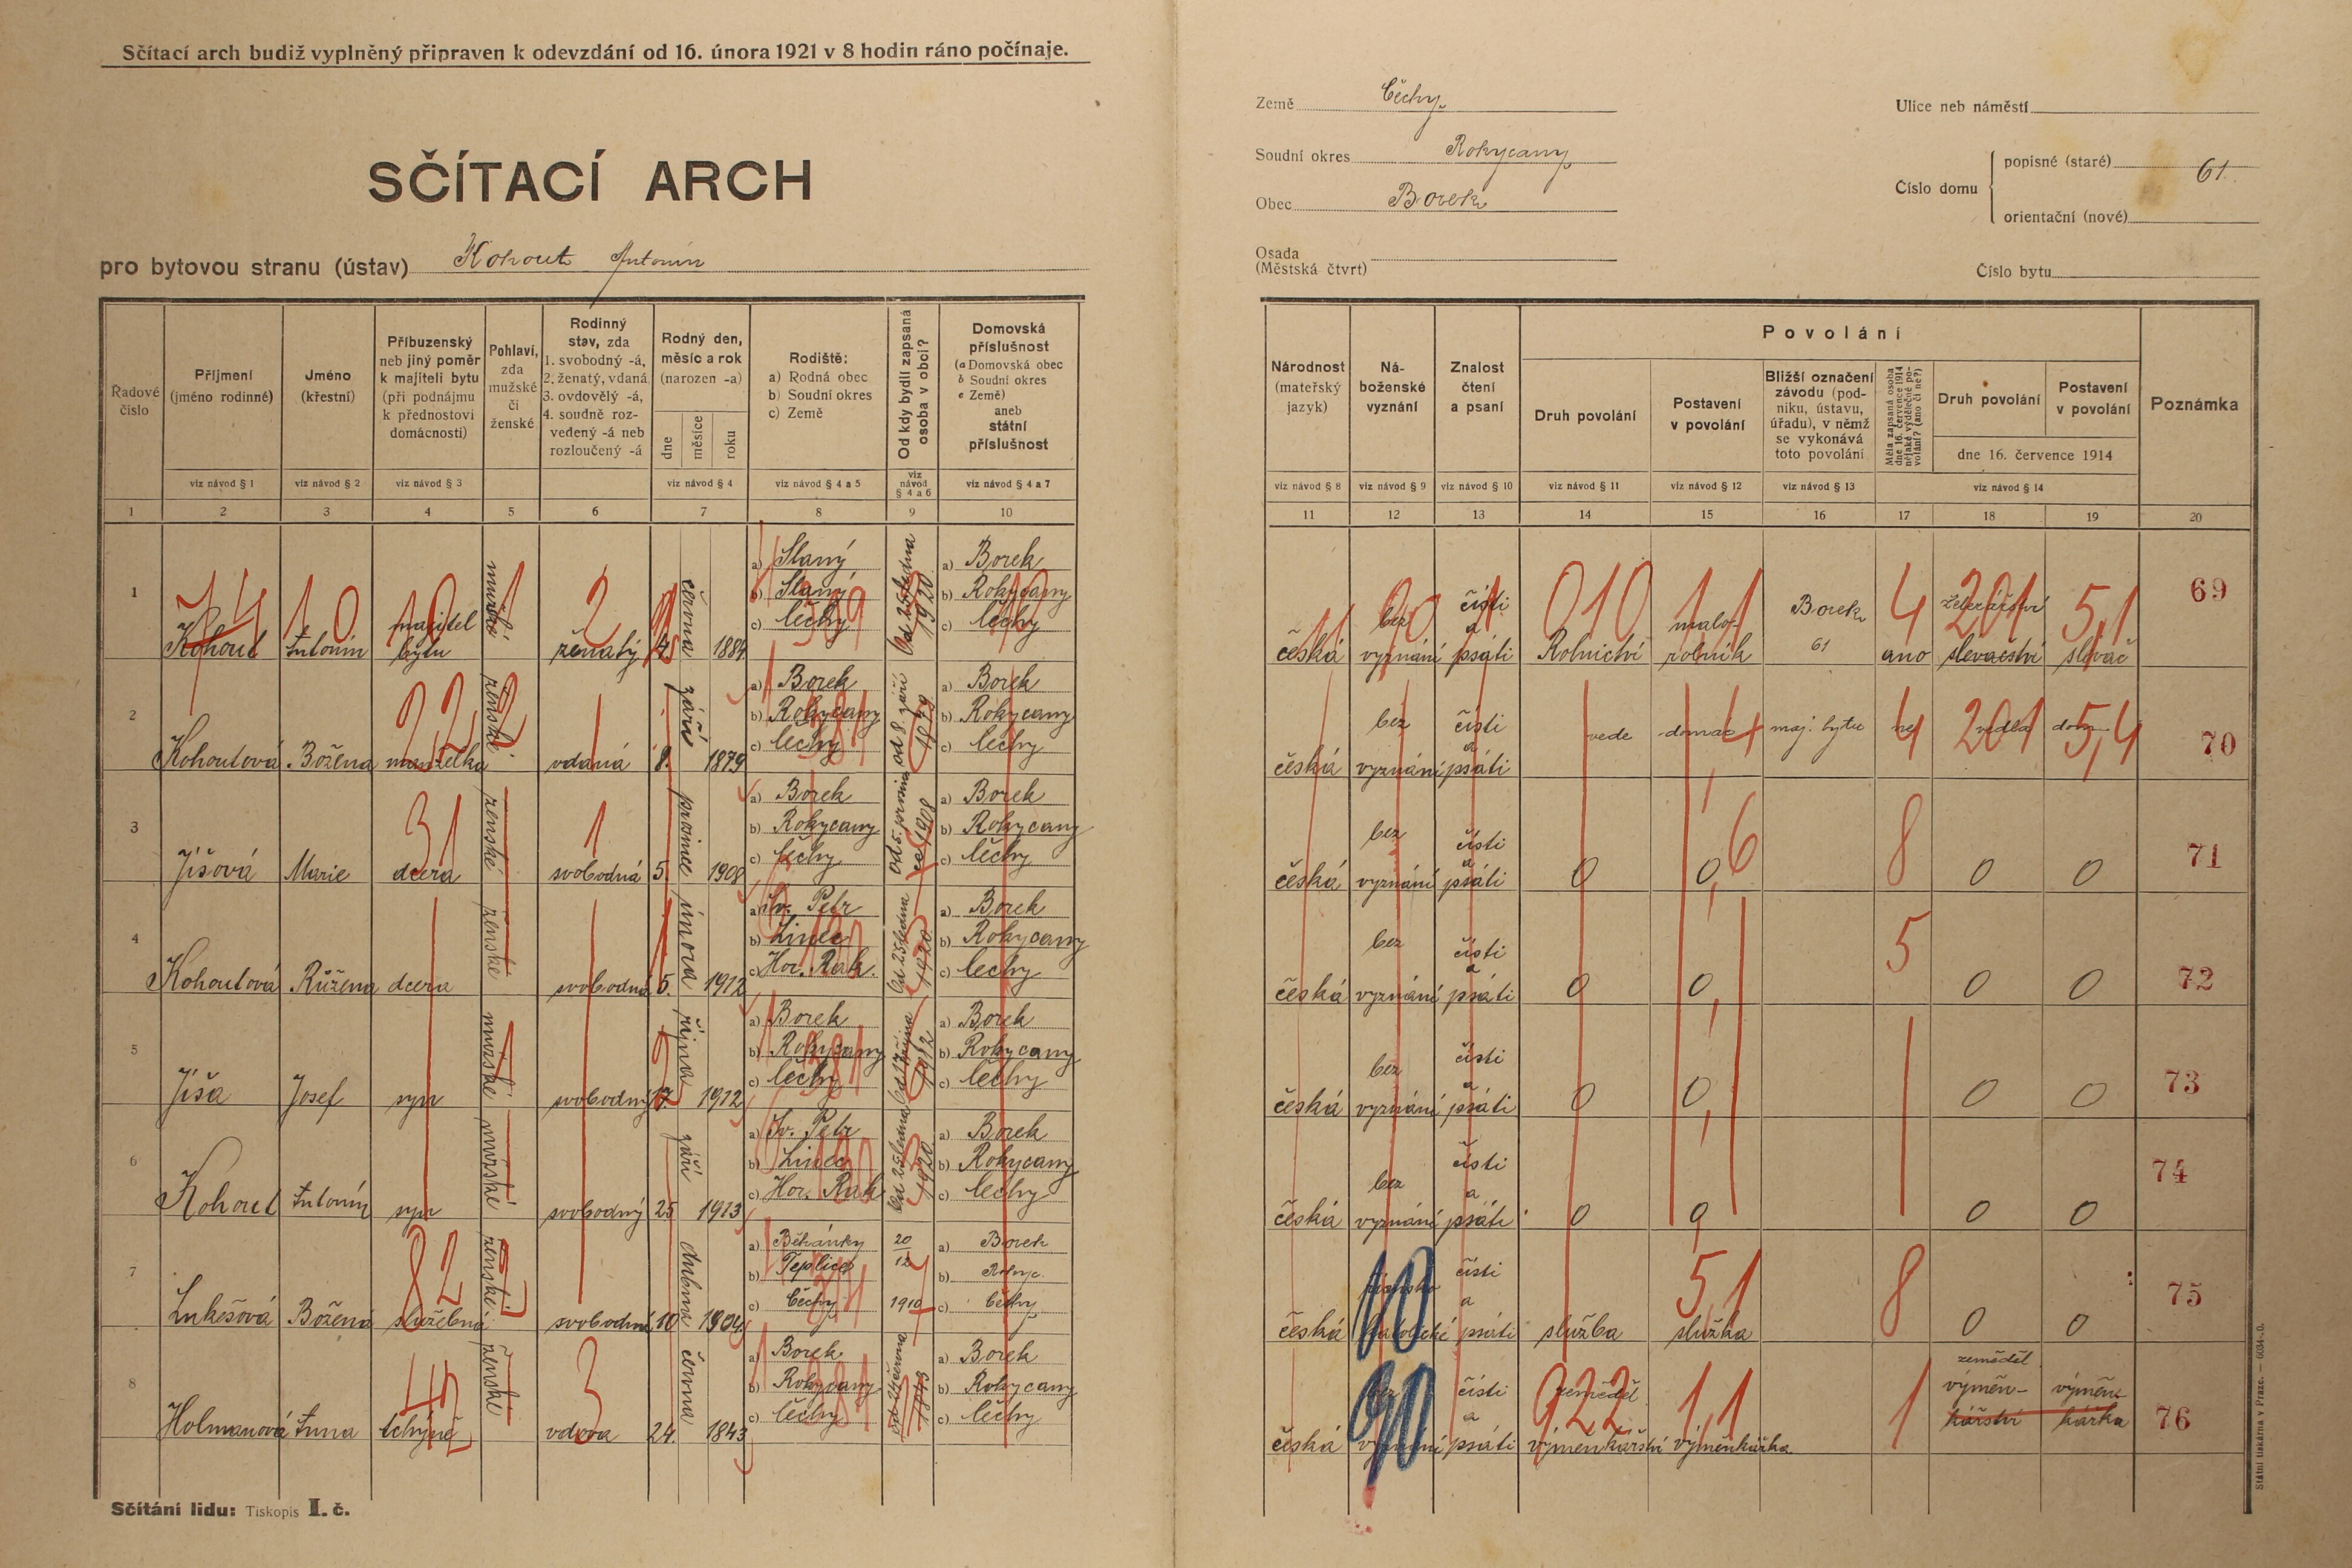 Sčítací arch budiž vyplněný připraven k odevzdání od 16. února 1921 v 8 hodin ráno počínaje.
SČÍTACÍ ARCH
pro bytovou stranu (ústav) Kohout Antonín
Země Čechy
Soudní okres Rokycany
Obec Borek
Osada
(Městská čtvrt)
Ulice neb náměstí
Číslo domu
popisné (staré) 61
orientační (nové)
Číslo bytu
Řadové číslo
Příjmení (jméno rodinné)
Jméno (křestní)
Příbuzenský neb jiný poměr k majiteli bytu (při podnájmu k přednostovi domácnosti)
Pohlaví, zda mužské či ženské
Rodinný stav, zda 1. svobodný -á, 2. ženatý, vdaná, 3. ovdovělý -á, 4. soudně rozvedený -á neb rozloučený -á
Rodný den, měsíc a rok (narozen -a)
dne měsíce roku
Rodiště: a) Rodná obec b) Soudní okres c) Země
Od kdy bydlí zapsaná osoba v obci?
Domovská příslušnost (a Domovská obec b Soudní okres c Země) aneb státní příslušnost
viz návod § 1 viz návod § 2 viz návod § 3 viz návod § 4 viz návod § 4 a 5 viz návod § 4 a 6 viz návod § 4 a 7
1 2 3 4 5 6 7 8 9 10
Národnost (mateřský jazyk)
Náboženské vyznání
Znalost čtení a psaní
Povolání
Druh povolání
Postavení v povolání
Bližší označení závodu (podniku, ústavu, úřadu), v němž se vykonává toto povolání
Měla zapsaná osoba dne 16. července 1914 nějaké výdělečné povolání? (ano či ne?)
Druh povolání
Postavení v povolání
dne 16. července 1914
Poznámka
viz návod § 8 viz návod § 9 viz návod § 10 viz návod § 11 viz návod § 12 viz návod § 13 viz návod § 14
11 12 13 14 15 16 17 18 19 20
1 Kohout Antonín majitel bytu mužské ženatý 4. června 1884 a) Slaný b) Slaný c) Čechy Od 25 ledna 1920 a) Borek b) Rokycany c) Čechy
česká bez vyznání čísti a psáti Rolnictví malorolník Borek 61 ano železářství slevačství slevač 69
2 Kohoutová Božena manželka ženské vdaná 8. září 1879 a) Borek b) Rokycany c) Čechy od 8. září 1879 a) Borek b) Rokycany c) Čechy
česká bez vyznání čísti a psáti vede domac maj. bytu ne vedla dom 70
3 Jíšová Marie dcera ženské svobodná 5. prosince 1908 a) Borek b) Rokycany c) Čechy od 5. prosince 1908 a) Borek b) Rokycany c) Čechy
česká bez vyznání čísti a psáti 0 0 0 0 71
4 Kohoutová Růžena dcera ženské svobodná 5. února 1912 a) Sv. Petr b) Linec c) Hor. Rak. Od 25 ledna 1920 a) Borek b) Rokycany c) Čechy
česká bez vyznání čísti a psáti 0 0 0 0 72
5 Jíša Josef syn mužské svobodný 17. října 1912 a) Borek b) Rokycany c) Čechy Od 17 října 1912 a) Borek b) Rokycany c) Čechy
česká bez vyznání čísti a psáti 0 0 0 0 73
6 Kohout Antonín syn mužské svobodný 25 září 1913 a) Sv. Petr b) Linec c) Hor. Rak Od 25 ledna 1920 a) Borek b) Rokycany c) Čechy
česká bez vyznání čísti a psáti 0 0 0 0 74
7 Lukešová Božena služebná ženské svobodná 10 dubna 1904 a) Běhánky b) Teplice c) Čechy 20/12 1910 a) Borek b) Rokyc. c) Čechy
česká římsko katolické čísti a psáti služba služka 0 0 75
8 Holmanová Anna tchyně ženské vdova 24. června 1843 a) Borek b) Rokycany c) Čechy od 24 června 1843 a) Borek b) Rokycany c) Čechy
česká bez vyznání čísti a psáti zeměděl. výměnkářství výměnkářka zeměděl výměnkářství výměnkářka 76
Sčítání lidu: Tiskopis I. č.
Státní tiskárna v Praze. — 6034-0.